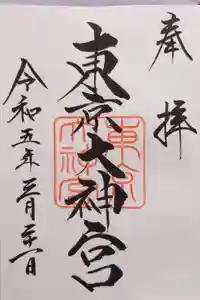 奉拝
東京大神宮
東京
大神宮
令和五年三月二十一日